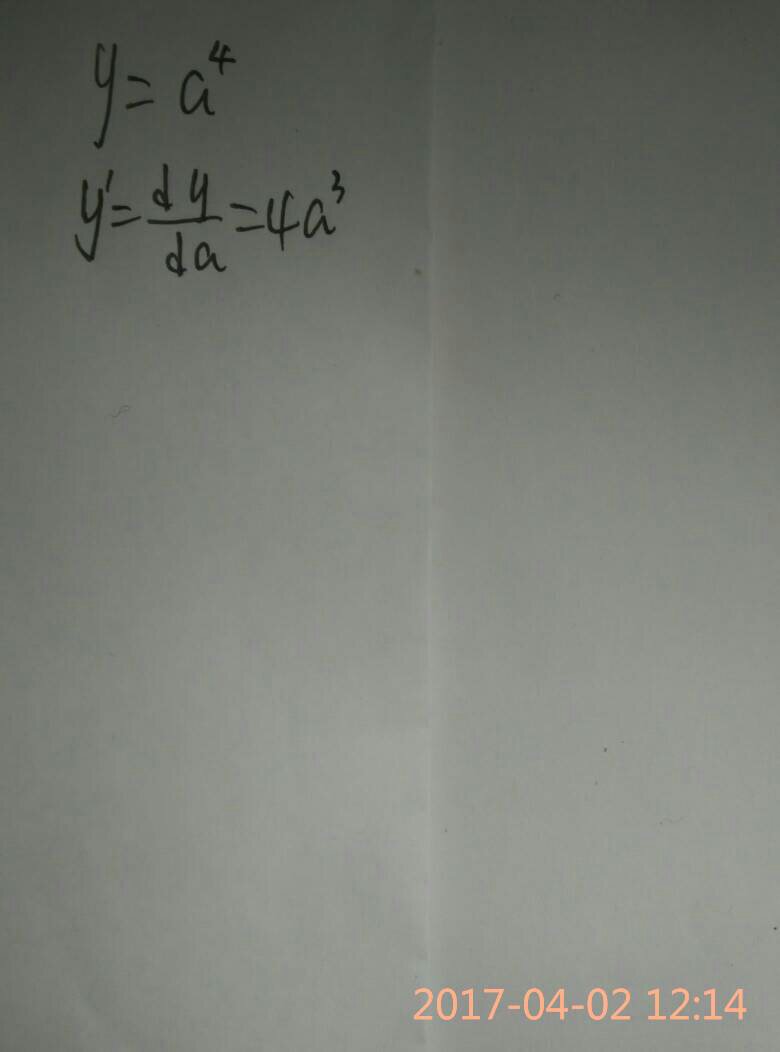 y = a⁴
y' = dy/da = 4a³
2017-04-02 12:14